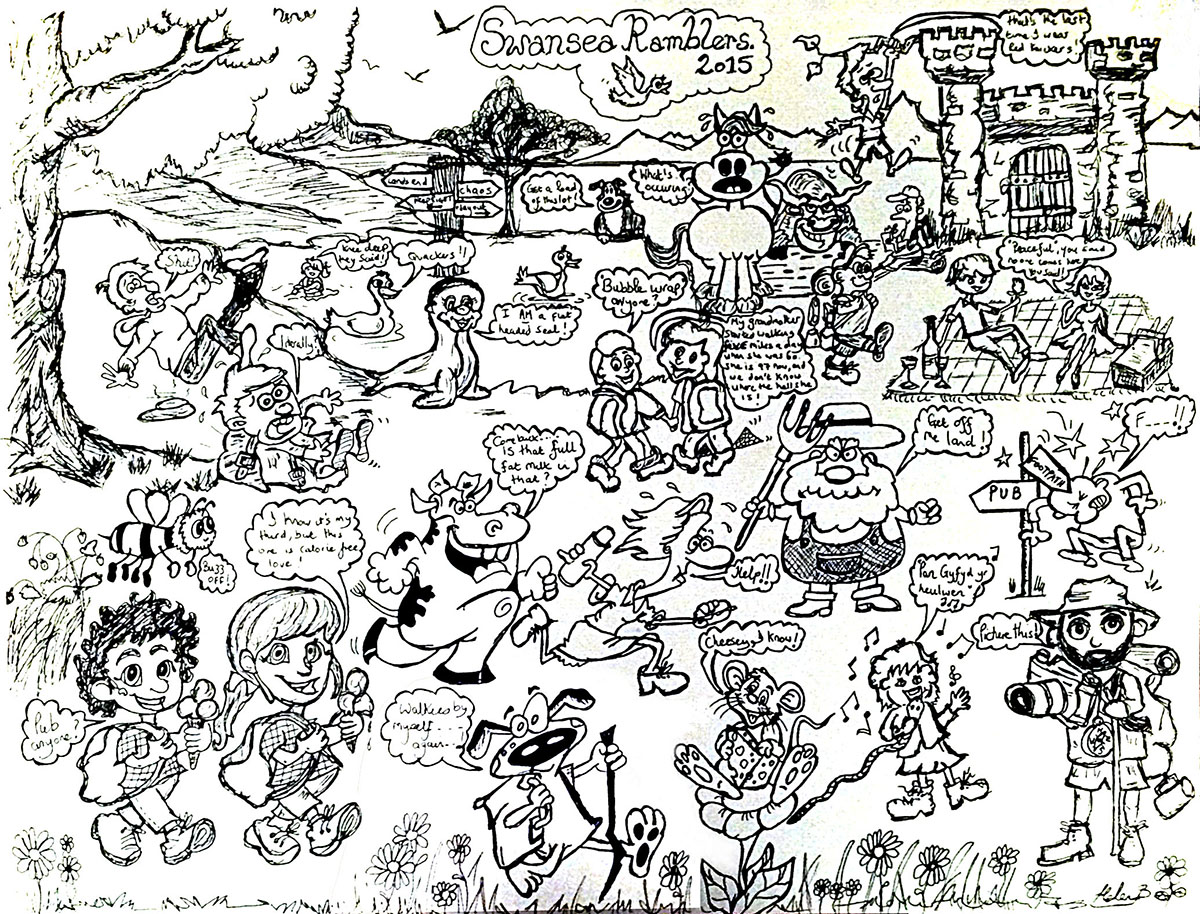 Swansea Ramblers.
2015
that's the last
time I wear
red knickers!
Lands end
chaos
Get a load
of this lot!
What's
occuring?
Shit!
knee deep
they said!
Quackers!!
I AM a flat
headed seal!
Bubble wrap
anyone?
Peaceful, you said
no one comes here
My grandmother
Started walking
miles a day
when she was 60.
She is 97 now, and
we don't know
where the hell she
is!
literally!
Come back...
is that full
fat milk in
that?
Get off
me land!
F---!!
FOOTPATH
PUB
I know it's my
third, but this
one is calorie free
love!
Buzz
OFF!
Help!!
Pan Gyfyd yr
heulwen
Cheesey, I know!
Picture this!
Pub
anyone?
Walkies by
myself...
again...
Helen B